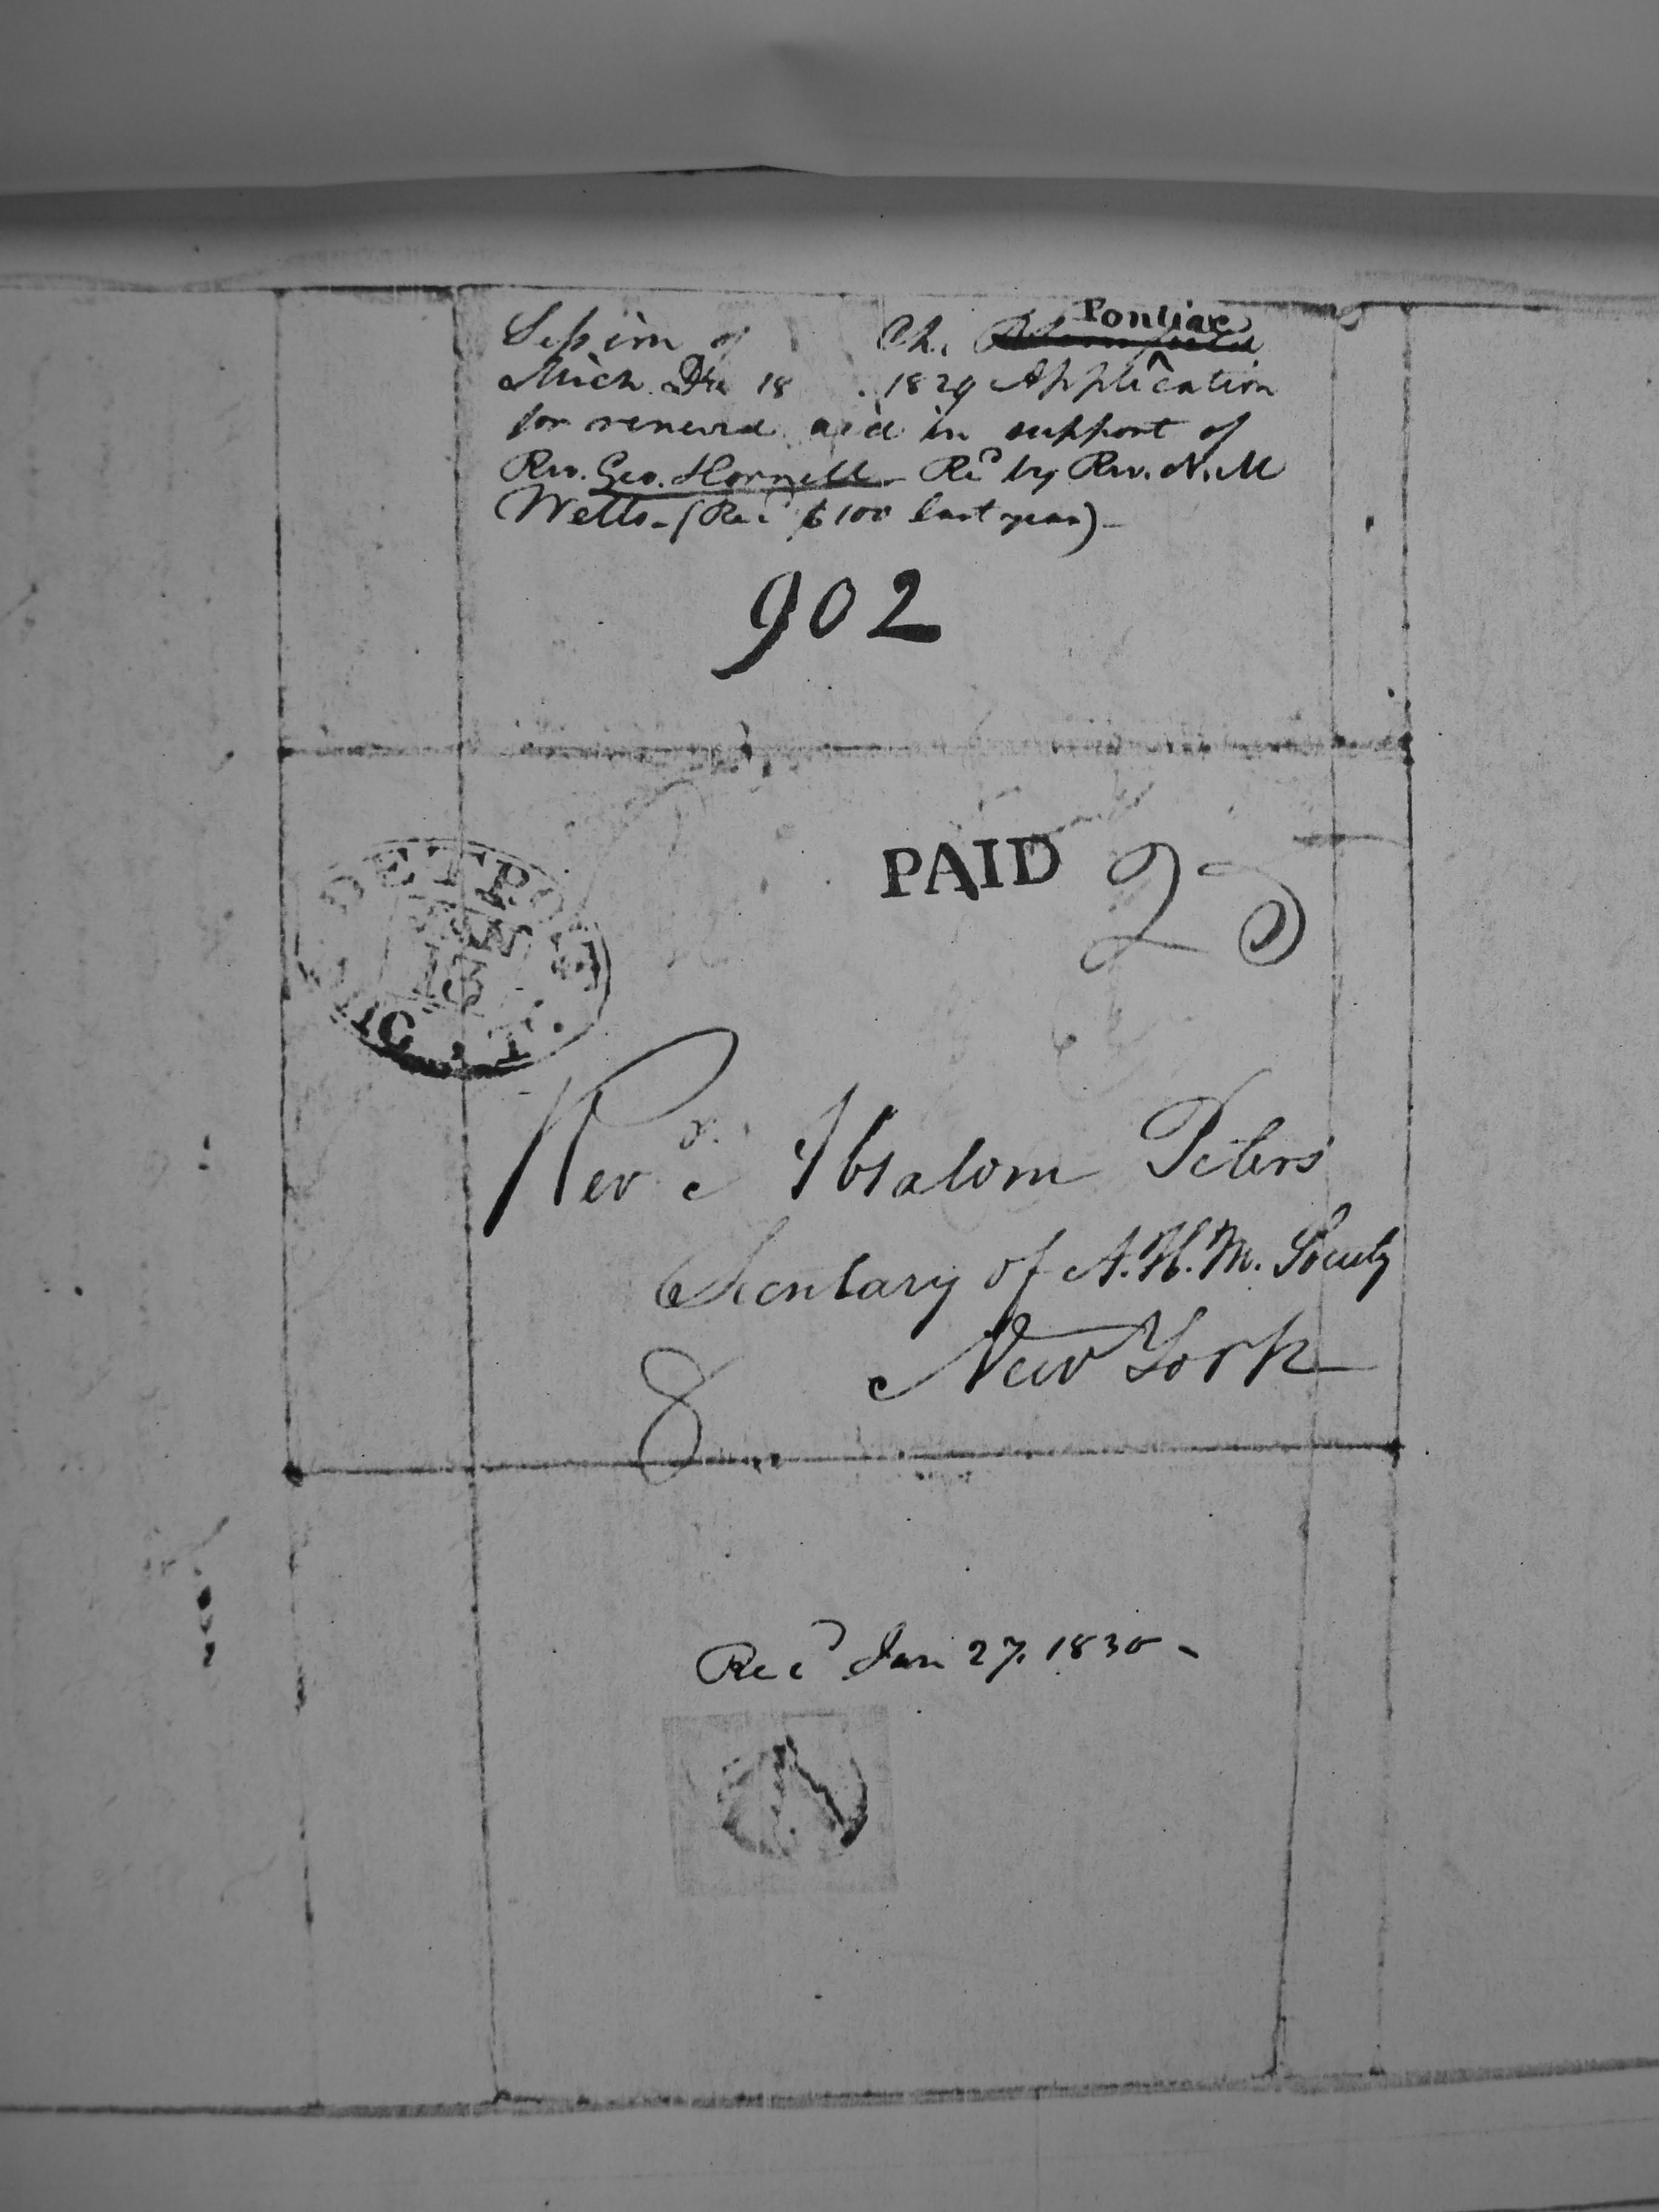 Pontiac
Session of Ch. Bloomfield
Mich. Dec 18. 1829 Application
for renewed aid in support of
Rev. Geo. Hornell - Recd by Rev. N. M
Wells - (Recd $100 last year) -
902
PAID 25
DETROIT
JAN
13
MIC. T.
Revd. Absalom Peters
Secretary of A. H. M. Society
New York
8
Recd Jan 27. 1830 -